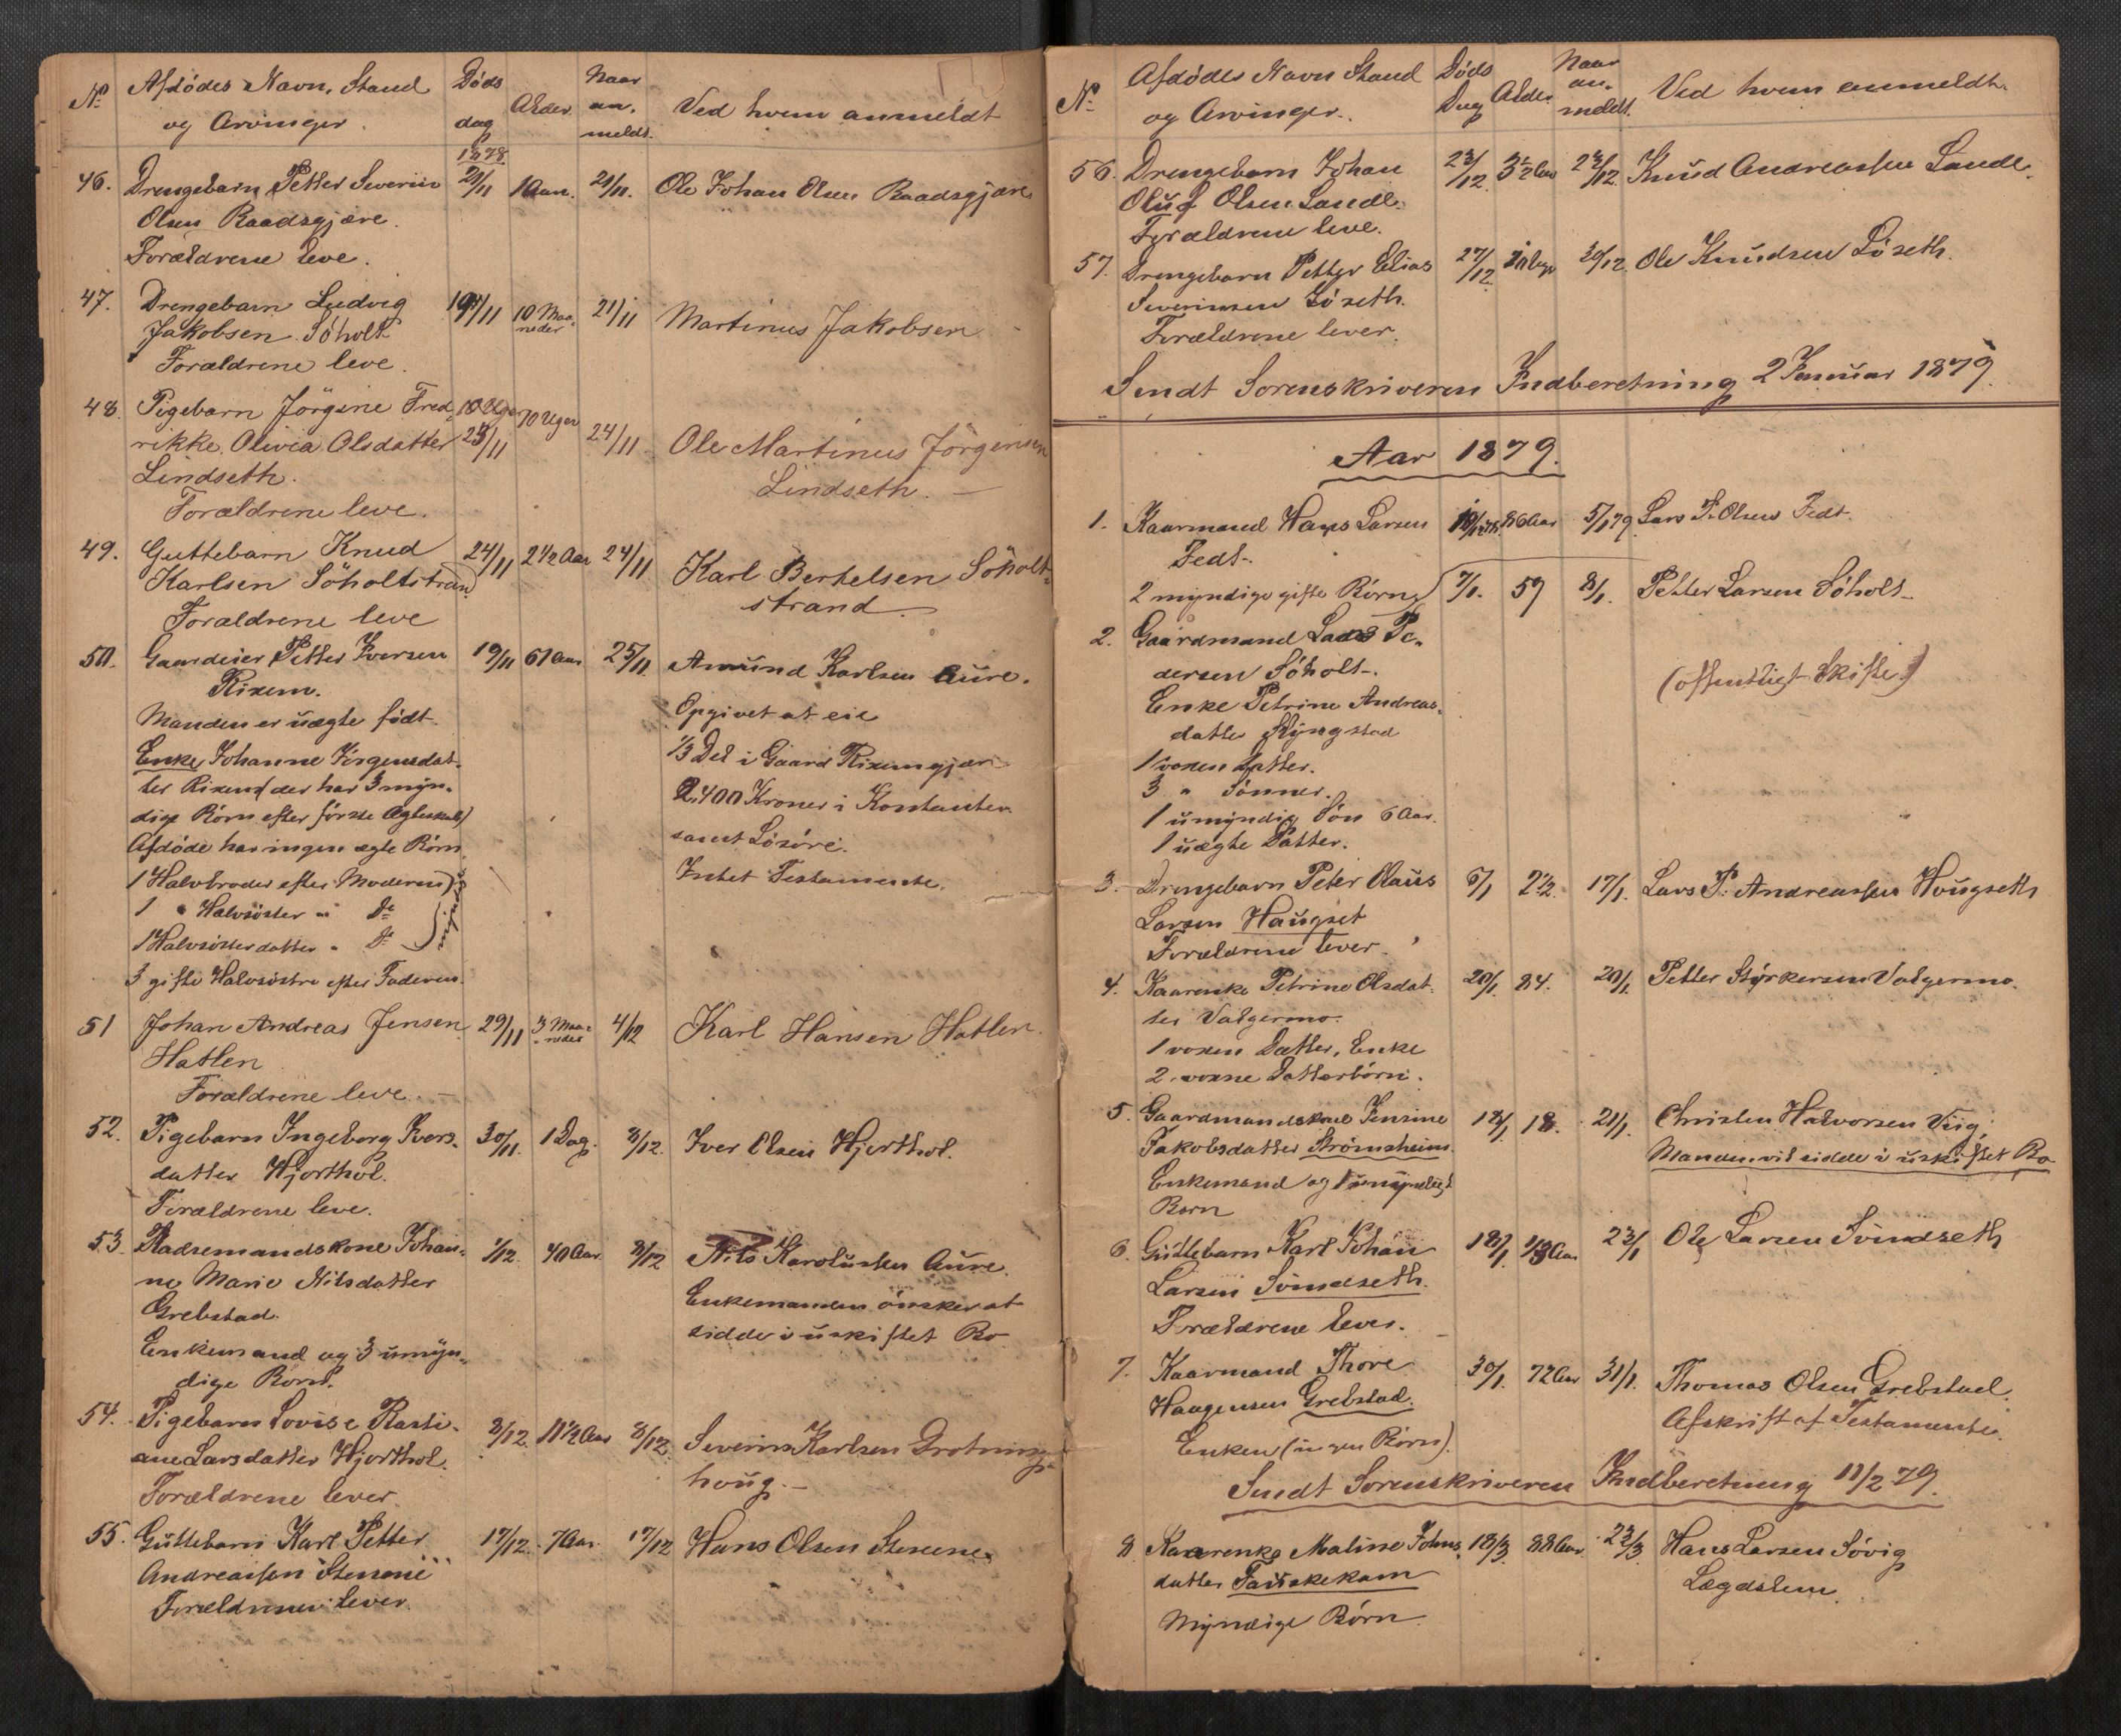 No Afdødes Navn, Stand og Arvinger. Dødsdag Alder Naar anmeldt. Ved hvem anmeldt
1878
46. Drengebarn Petter Severin 21/11 1 Aar. 21/11. Ole Johan Olsen Raadsgjære
Olsen Raadsgjære.
Forældrene leve.
47. Drengebarn Ludvig 19/11 10 Maaneder 21/11 Martinus Jakobsen
Jakobsen Söholt
Forældrene leve.
48. Pigebarn Jörgine Fred- 10 Uger
rikke Olivia Olsdatter 23/11 24/11 Ole Martinus Jörgensen
Lindseth. Lindseth. —
Forældrene leve.
49. Guttebarn Knud 24/11 2 1/2 Aar 24/11
Karlsen Söholtstrand Karl Bertelsen Söholt-
Forældrene leve strand
50. Gaardeier Petter Iversen 19/11 61 Aar 25/11 Amund Karlsen Aure.
Rixem.
Manden er uægte født. Opgivet at eie
Enke Johanne Jörgensdat- 1/3 Del i Gaard Rixemgjær
ter Rixem (der har 3 myn- 2,400 Kroner i Kontanter
dige Børn efter første Ægteskab)
Afdøde har ingen ægte Børn. samt Løsøre.
1 Halvbroder efter Moderen Intet Testamente.
1 " Halvsöster " Do
1 Halvsösterdatter " Do
3 gifte Halvsöstre efter Faderen.
51 Johan Andreas Jensen 29/11 3 Maaneder 4/12 Karl Hansen Hatlen.
Hatlen
Forældrene leve. —
52. Pigebarn Ingeborg Ivers- 30/11. 1 Dag. 8/12. Iver Olsen Hjorthol.
datter Hjorthol.
Forældrene leve.
53. Pladsemandskone Johan- 1/12. 40 Aar 8/12 Nils Karolussen Aure.
ne Marie Nilsdatter Enkemanden ønsker at
Grebstad. sidde i uskiftet Bo
Enkemand og 3 umyn-
dige Børn.
54. Pigebarn Lovise Rasti- 8/12. 11 1/2 Aar 8/12. Severin Karlsen Drotning-
ane Larsdatter Hjorthol. houg. —
Forældrene lever.
55. Guttebarn Karl Petter 17/12. 7 Aar. 17/12 Hans Olsen Stenene
Andreassen Stenene
Forældrene lever.
No Afdødes Navn Stand og Arvinger. Døds Dag Alder Naar anmeldt. Ved hvem anmeldt.
56. Drengebarn Johan 23/12. 3 1/2 Aar 23/12. Knud Andreassen Lande.
Oluf Olsen Lande.
Forældrene leve.
57. Drengebarn Petter Elias 27/12. 30/12. Ole Knudsen Løseth.
Severinsen Løseth.
Forældrene lever.
Sendt Sorenskriveren Indberetning 2 Januar 1879.
Aar 1879.
1. Kaarmand Hans Larsen 86 Aar 5/1 79 Lars P. Olsen Fedt.
Fedt.
2 myndige gifte Børn
2. Gaardmand Lars Pe- 7/1. 59 8/1. Petter Larsen Söholt
dersen Söholt. (offentligt Skifte)
Enke Petrine Andreas-
datter Ryngstad
1 voxen Datter.
3 " Sønner.
1 umyndig Søn 6 Aar.
1 uægte Datter.
3. Drengebarn Peter Olaus 6/1 2 1/2. 17/1. Lars P. Andreassen Hougseth
Larsen Haugset
Forældrene lever.
4. Kaarenke Petrine Olsdat- 20/1. 84. 20/1. Petter Styrkersen Valgermo.
ter Valgermo.
1 voxen Datter, Enke
2 voxne Datterbörn.
5. Gaardmandskone Jensine 18/1. 18. 21/1. Christen Halvorsen Viig.
Jakobsdatter Strömsheim. Manden vil sidde i uskiftet Bo
Enkemand og 1 umyndigt
Barn
6. Guttebarn Karl Johan 18/1. 23/1 Ole Larsen Svindseth
Larsen Svindseth.
Forældrene lever.
7. Kaarmand Thore 30/1. 72 Aar 31/1. Thomas Olsen Grebstad.
Haagensen Grebstad. Afskrift af Testamente.
Enken (ingen Børn).
Sendt Sorenskriveren Indberetning 11/2 79.
8. Kaarenke Maline Johns- 18/3. 88 Aar. 23/3. Hans Larsen Søvig
datter Fauskekam Lægdslem.
Myndige Børn.